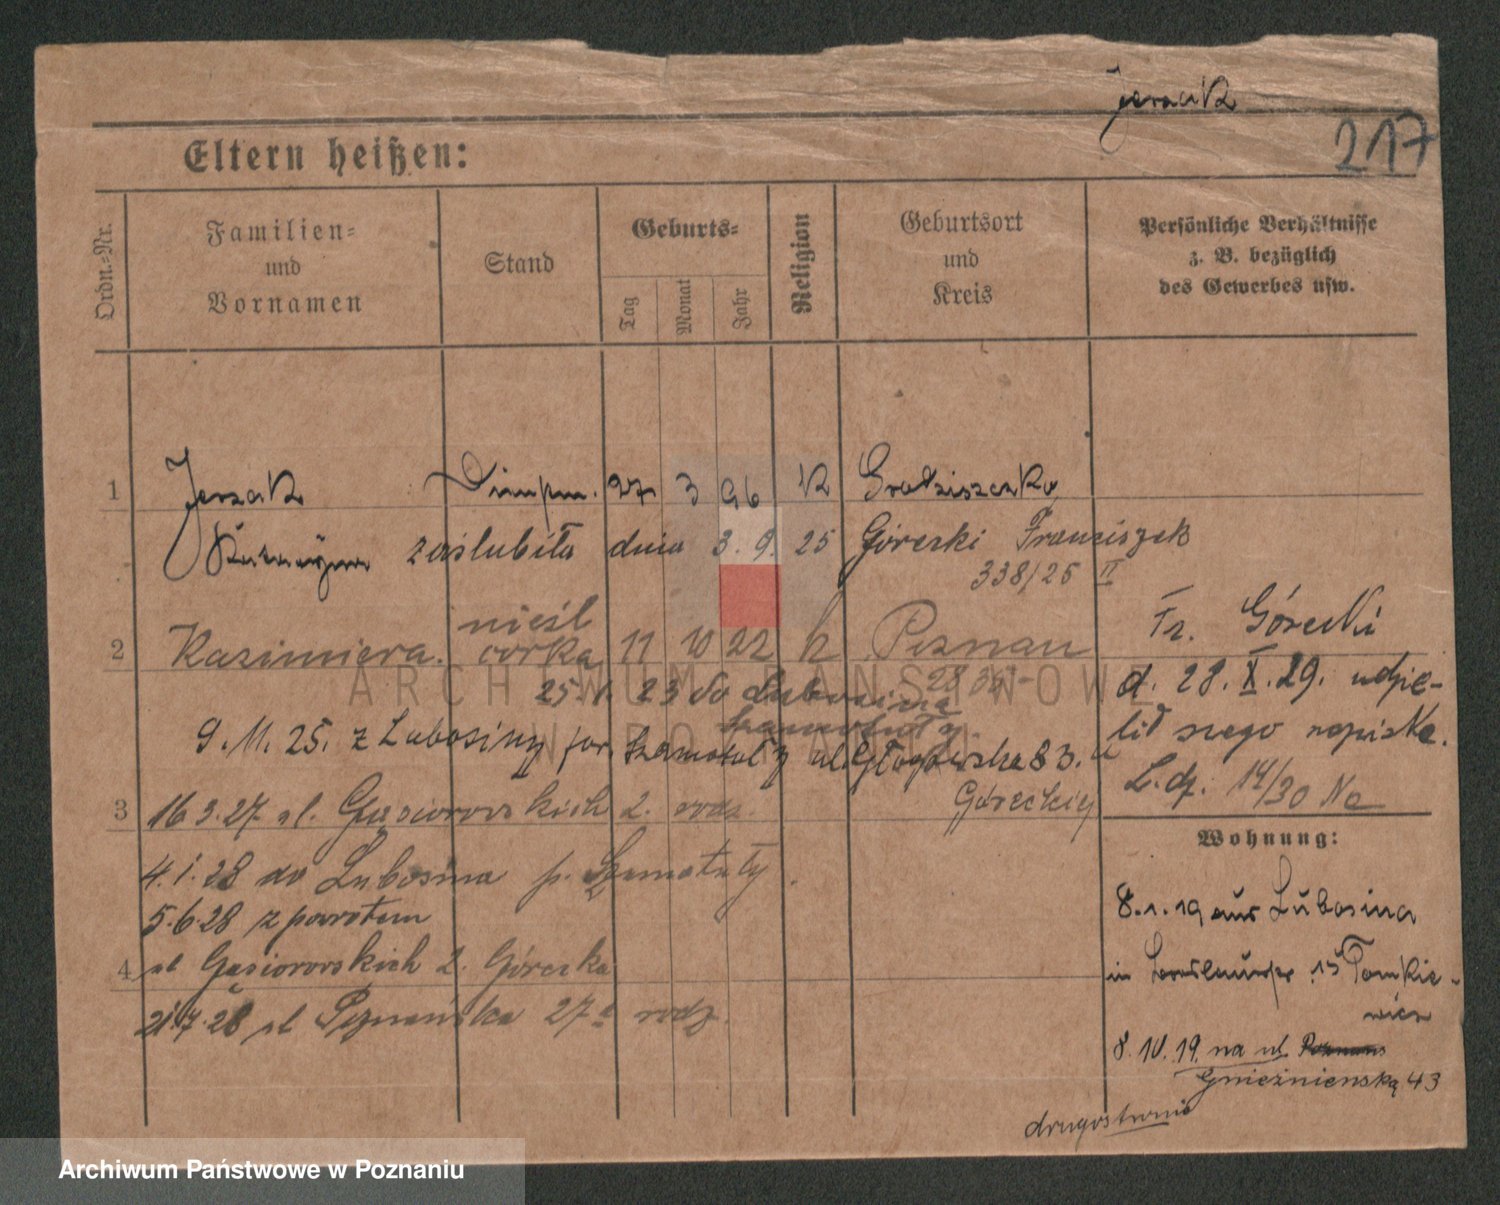 Jerzak
217
Eltern heißen:
Ordn.-Nr.
Familien-
und
Vornamen
Stand
Geburts-
Tag
Monat
Jahr
Religion
Geburtsort
und
Kreis
Persönliche Verhältnisse
z. B. bezüglich
des Gewerbes usw.
1 Jerzak 27 3 96 K Grodziszczko
zaślubiła dnia 3. 9. 25 Górecki Franciszek
338/25 II
nieśl
2 Kazimiera córka 11 10 22 k Poznań
Fr. Górecki
25. 1. 23 do Lubosina
d. 28. X. 29. udzie-
lił swego nazwiska.
L. dz. 14/30 Na
9. 11. 25. z Lubosiny pow. Szamotuły ul. Głogowska 83. u
Góreckiej
3 16 3. 27. ul. Gąsiorowskich 2. rodz.
4. 1. 28 do Lubosina p. Szamotuły.
5. 6. 28 z powrotem
4 ul Gąsiorowskich 2. Górecka
21. 7. 28 ul Poznańska 27a rodz.
Wohnung:
8. 1. 19 aus Lubosina
in 15 Tomkie-
wicz
8. 10. 19. na ul.
Gnieźnieńską 43
drugostronie
ARCHIWUM PAŃSTWOWE
W POZNANIU
Archiwum Państwowe w Poznaniu